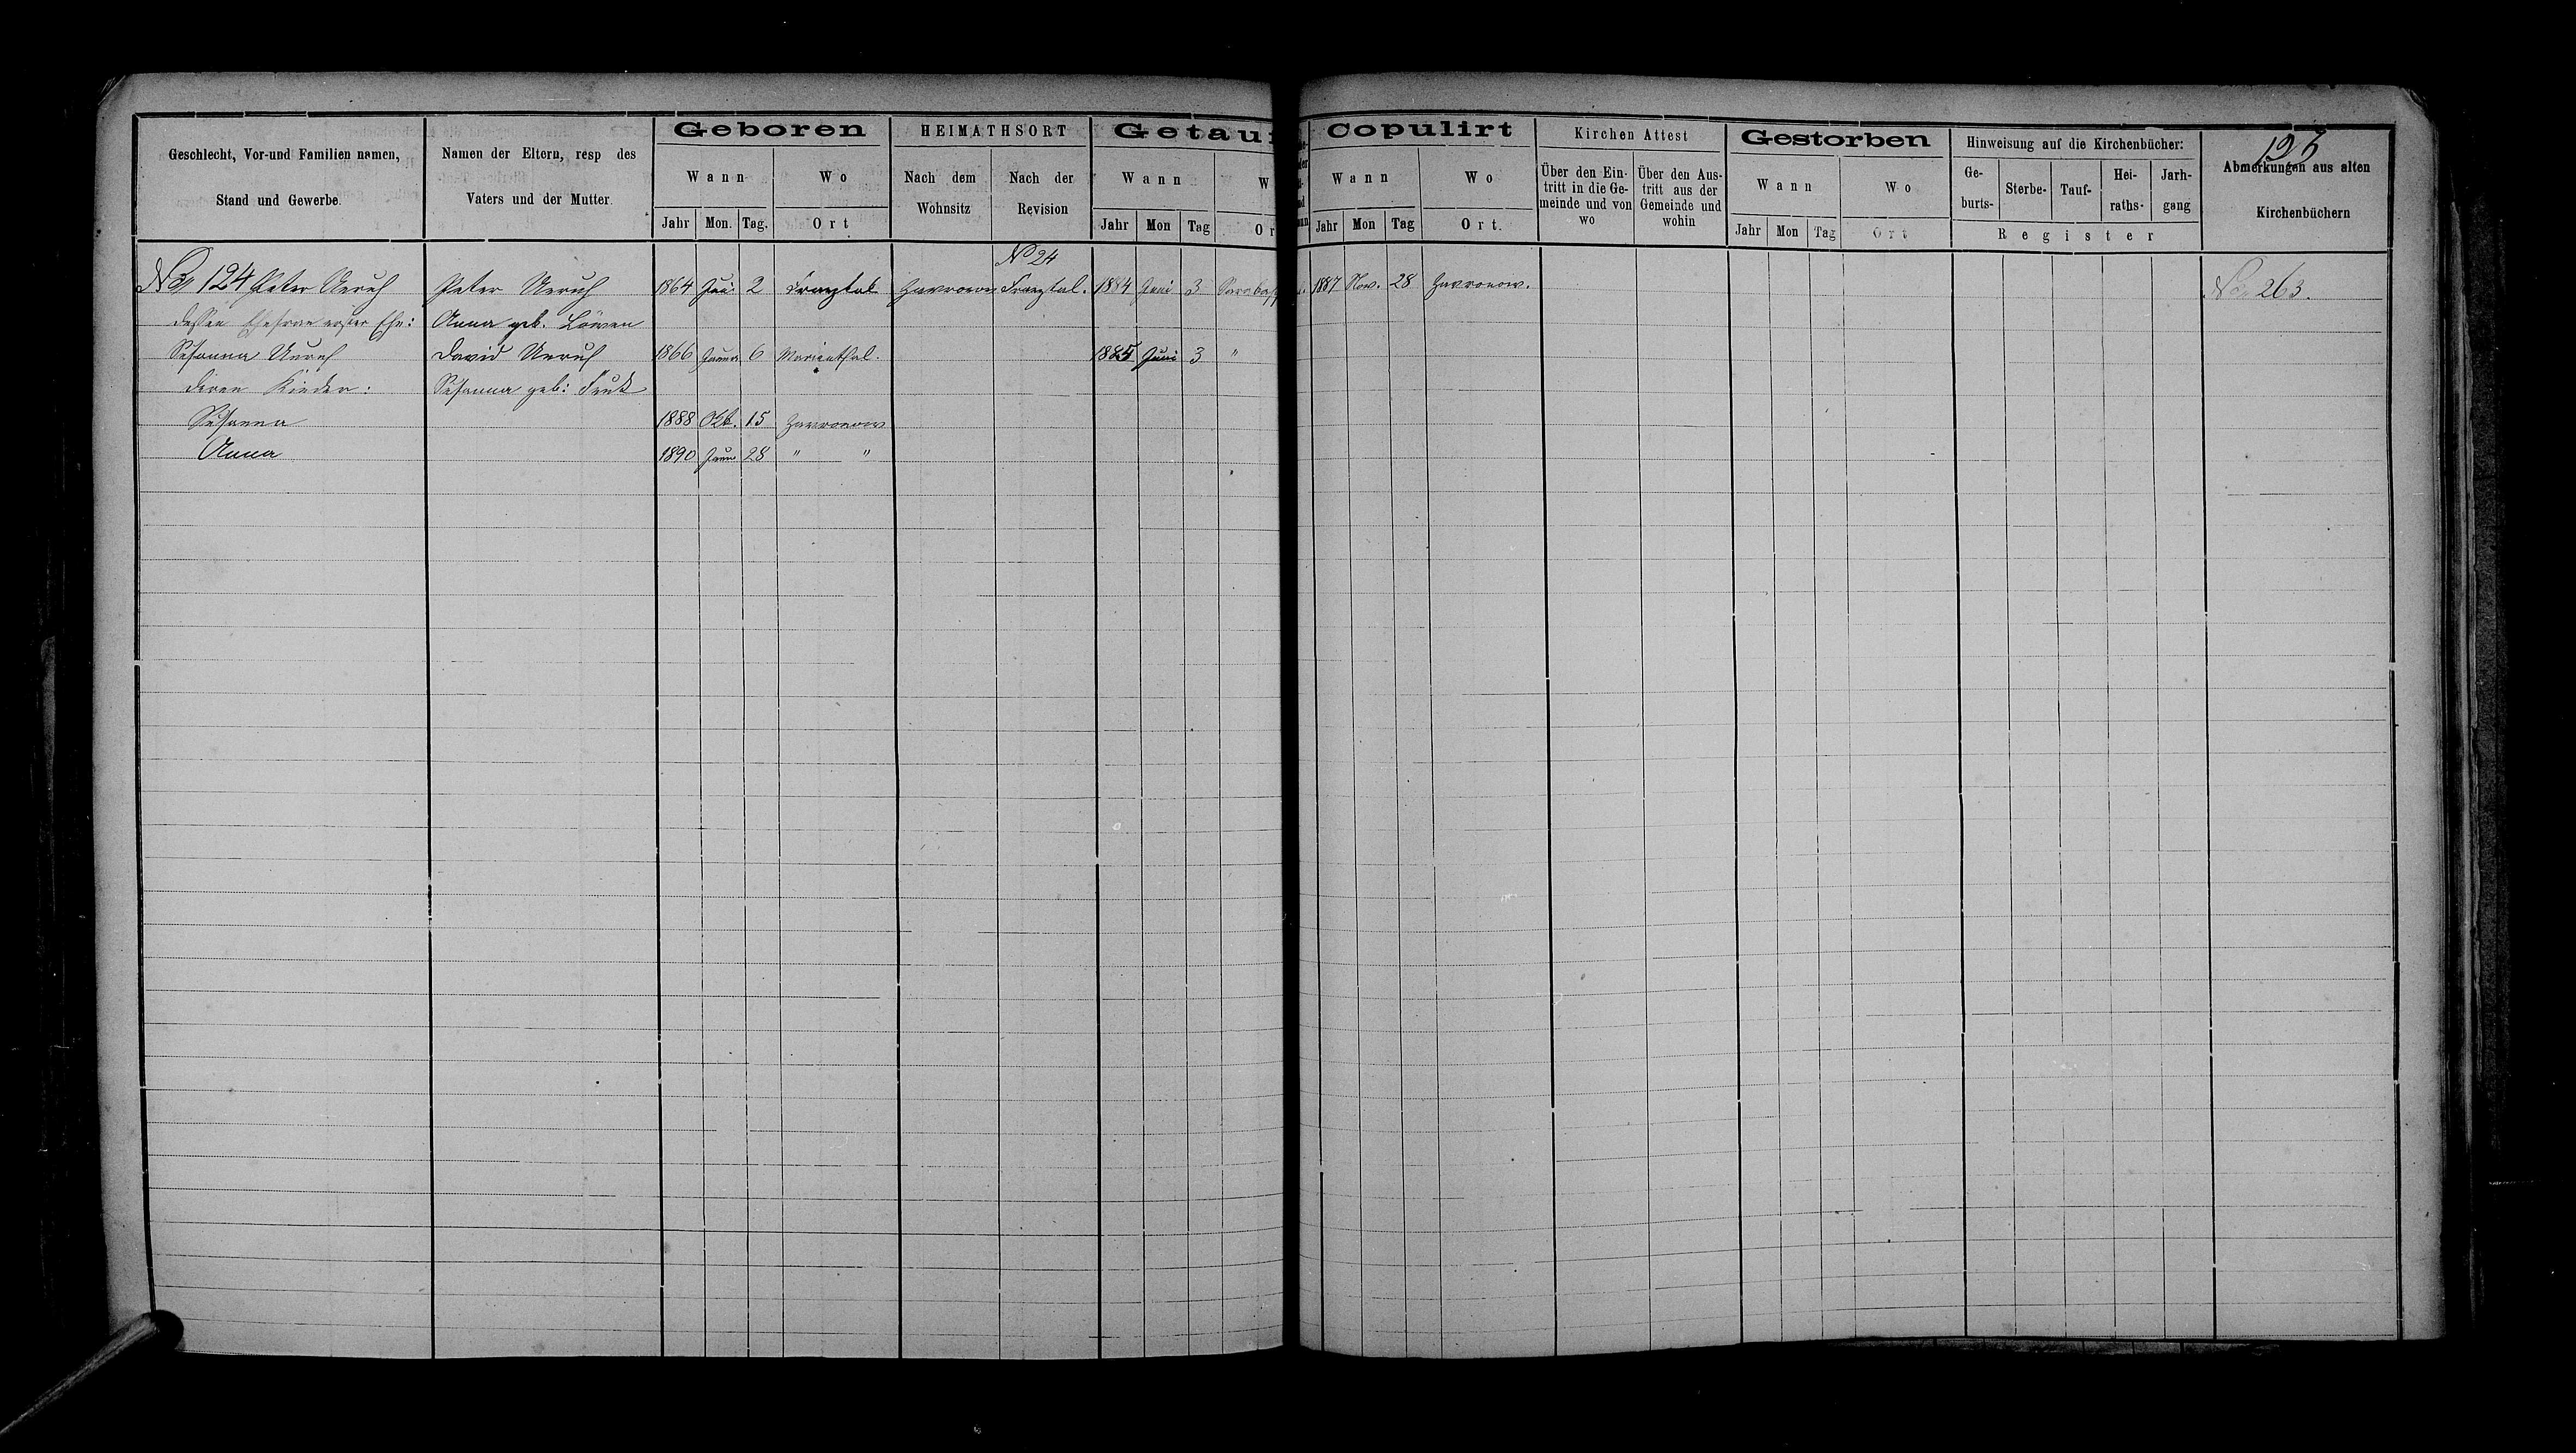 Geschlecht, Vor-und Familien namen,
Stand und Gewerbe.
Namen der Eltern, resp des
Vaters und der Mutter.
Geboren
Wann
Wo
Jahr Mon. Tag. Ort
HEIMATHSORT
Nach dem
Wohnsitz
Nach der
Revision
Getau
Wann
W
Jahr Mon Tag Or
Copulirt
Wann
Wo
Jahr Mon Tag Ort.
Kirchen Attest
Über den Ein-
tritt in die Ge-
meinde und von
wo
Über den Aus-
tritt aus der
Gemeinde und
wohin
Gestorben
Wann
Wo
Jahr Mon Tag Ort
Hinweisung auf die Kirchenbücher:
Ge-
burts-
Sterbe-
Tauf-
Hei-
raths-
Jarh-
gang
Register
Abmerkungen aus alten
Kirchenbüchern
No 24
No 124 Peter Unruh Peter Unruh 1864 2 Franztal Hawronow Franztal. 1884 Juni 3 1887 Nov. 28 Hawronow. No 263.
dessen Ehefrau erster Ehe: Anna geb. Löwen
Susanna Unruh David Unruh 1866 Januar 6 Marienthal. 1885 Juni 3 "
deren Kinder: Susanna geb:
Susanna 1888 Okt. 15 Hawronow
Anna 1890 28 " "